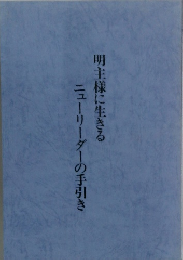 明主様に生きる
ニューリーダーの手引き